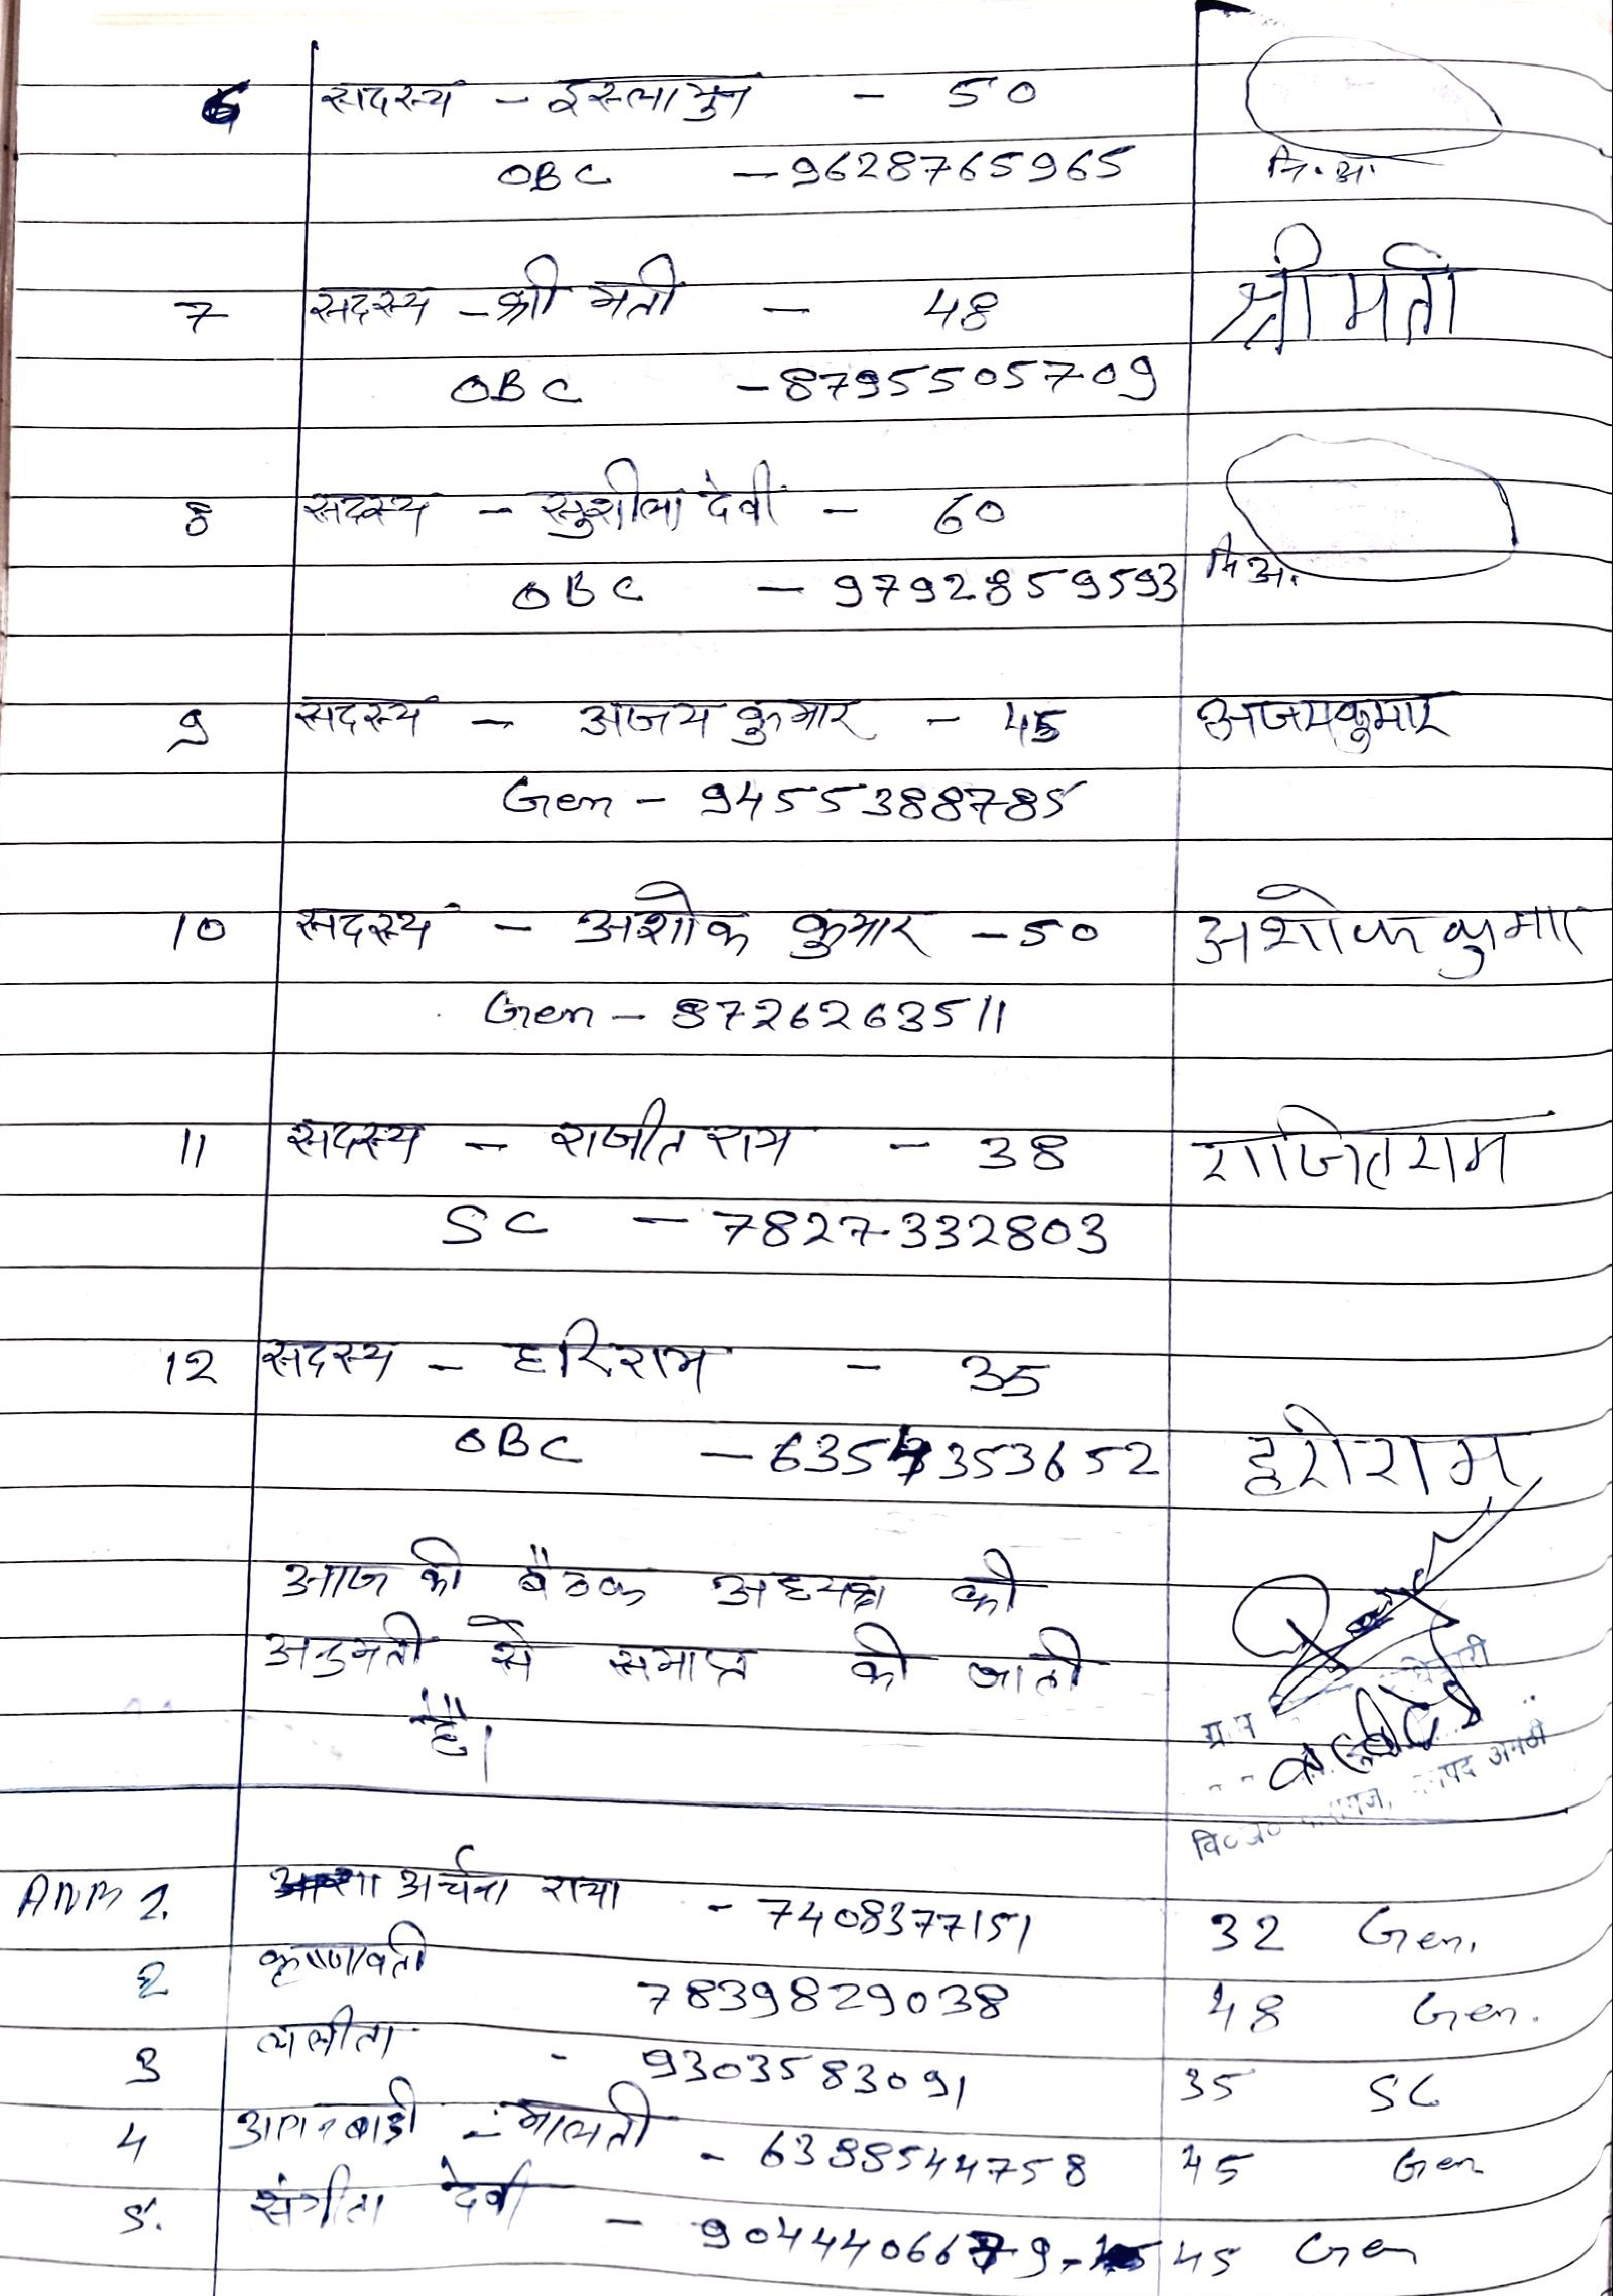 6 सदस्य - इस्लामुन - 50
OBC - 9628765965 नि.अ.
7 सदस्य - श्री मती - 48 श्रीमती
OBC - 8795505709
8 सदस्य - सुशीला देवी - 60
OBC - 9792859593 नि.अ.
9 सदस्य - अजय कुमार - 45 अजयकुमार
Gen - 9455388785
10 सदस्य - अशोक कुमार - 50 अशोक कुमार
Gen - 8726263511
11 सदस्य - राजीत राम - 38 राजितराम
SC - 7827332803
12 सदस्य - हरिराम - 35
OBC - 6354353652 हरीराम
आज की बैठक अध्यक्ष की
अनुमती से समाप्त की जाती
है।
ANM 1. अर्चना राया - 7408377151 32 Gen.
2 कृष्णावती 7839829038 48 Gen.
3 ललीता - 9303583091 35 SC
4 आगनबाड़ी - मालती - 6388544758 45 Gen
5. संगीता देवी - 9044406679 - 45 Gen